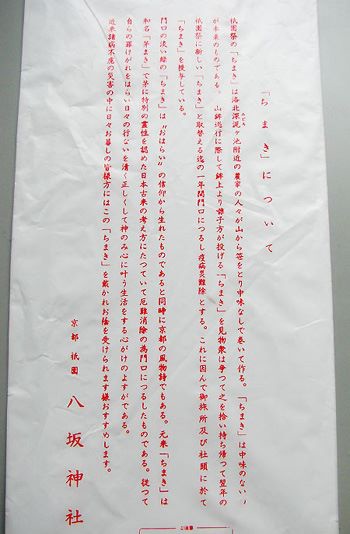 「ちまき」について
祇園祭の「ちまき」は洛北深泥ヶ池附近の農家の人々が山から笹をとり中味なしで巻いて作る。「ちまき」は中味のないの
が本来のものである。山鉾巡行に際して鉾上より囃子方が投げる「ちまき」を見物衆は争つて之を拾い持ち帰つて翌年の
祇園祭に新しい「ちまき」と取替える迄の一年間門口につるし疫病災難除とする。これに因んで御旅所及び社頭に於て
「ちまき」を授与している。
門口の淡い緑の「ちまき」は〝おはらい〟の信仰から生れたものであると同時に京都の風物詩でもある。元来「ちまき」は
和名「茅まき」で茅に特別の霊性を認めた日本古来の考え方にたつていて厄難消除の為門口につるしたものである。従つて
自らの罪けがれをはらい日々の行ないを清く正しくして神のみ心に叶う生活をする心がけのよすがである。
近来諸病不慮の災害の中に日々お暮しの皆様方にはこの「ちまき」を戴かれお蔭を受けられます様おすすめします。
京都祇園 八坂神社
ご注意